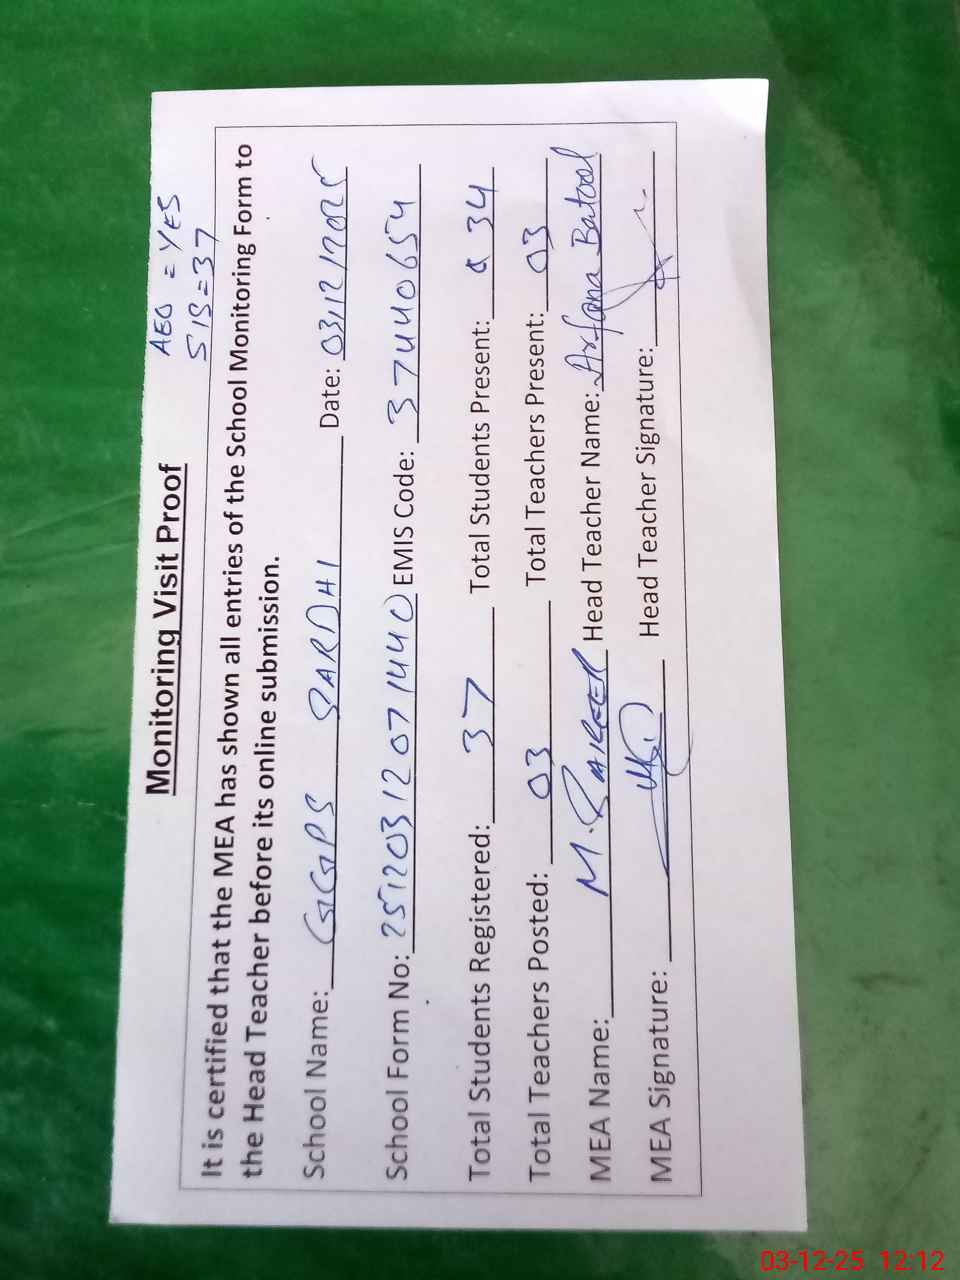 AEO = YES
SIS = 37
Monitoring Visit Proof
It is certified that the MEA has shown all entries of the School Monitoring Form to
the Head Teacher before its online submission.
School Name: GGPS SARDHI Date: 03/12/2025
School Form No: 25120312071440 EMIS Code: 37440654
Total Students Registered: 37 Total Students Present: 34
Total Teachers Posted: 03 Total Teachers Present: 03
MEA Name: M. Head Teacher Name: Arfana Batool
MEA Signature: Head Teacher Signature:
03-12-25 12:12